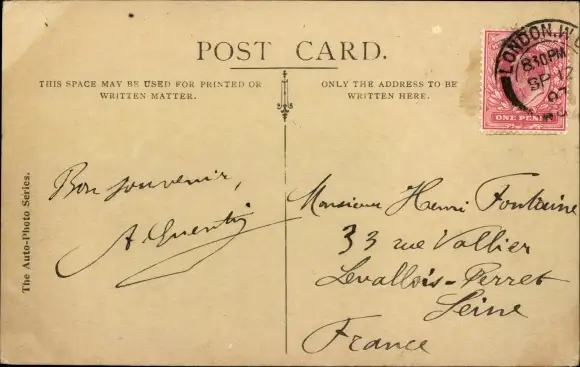 POST CARD.
THIS SPACE MAY BE USED FOR PRINTED OR
WRITTEN MATTER.
ONLY THE ADDRESS TO BE
WRITTEN HERE.
LONDON. W.C
8.30 PM
SP 17
07
ONE PENNY
The Auto-Photo Series.
Bon souvenir,
A. Quentin
Monsieur Henri Fontaine
33 rue Vallier
Levallois-Perret
Seine
France